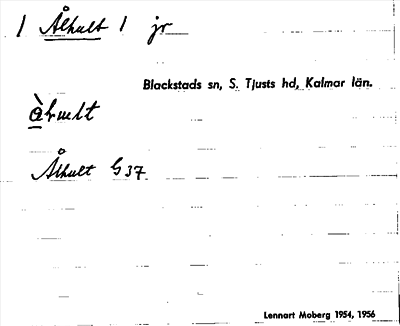 1 Ålhult 1 jr
Blackstads sn, S. Tjusts hd, Kalmar län.
Ålhult G 37
Lennart Moberg 1954, 1956